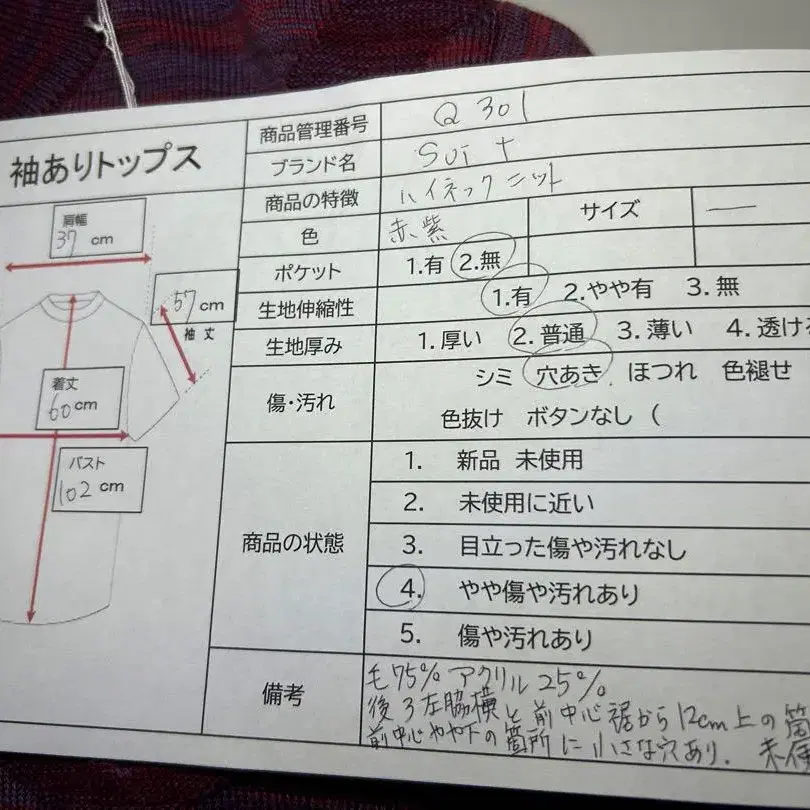 袖ありトップス
商品管理番号 Q301
ブランド名 SUI
商品の特徴 ハイネックニット
色 赤紫 サイズ ―
ポケット 1.有 2.無
生地伸縮性 1.有 2.やや有 3.無
生地厚み 1.厚い 2.普通 3.薄い 4.透ける
傷・汚れ シミ 穴あき ほつれ 色褪せ
色抜け ボタンなし (
商品の状態
1. 新品 未使用
2. 未使用に近い
3. 目立った傷や汚れなし
4. やや傷や汚れあり
5. 傷や汚れあり
備考
毛75% アクリル25%
後ろ左脇横と前中心裾から12cm上の箇
前中心やや下の箇所に小さな穴あり.
肩幅
37 cm
57 cm
袖丈
着丈
60 cm
バスト
102 cm